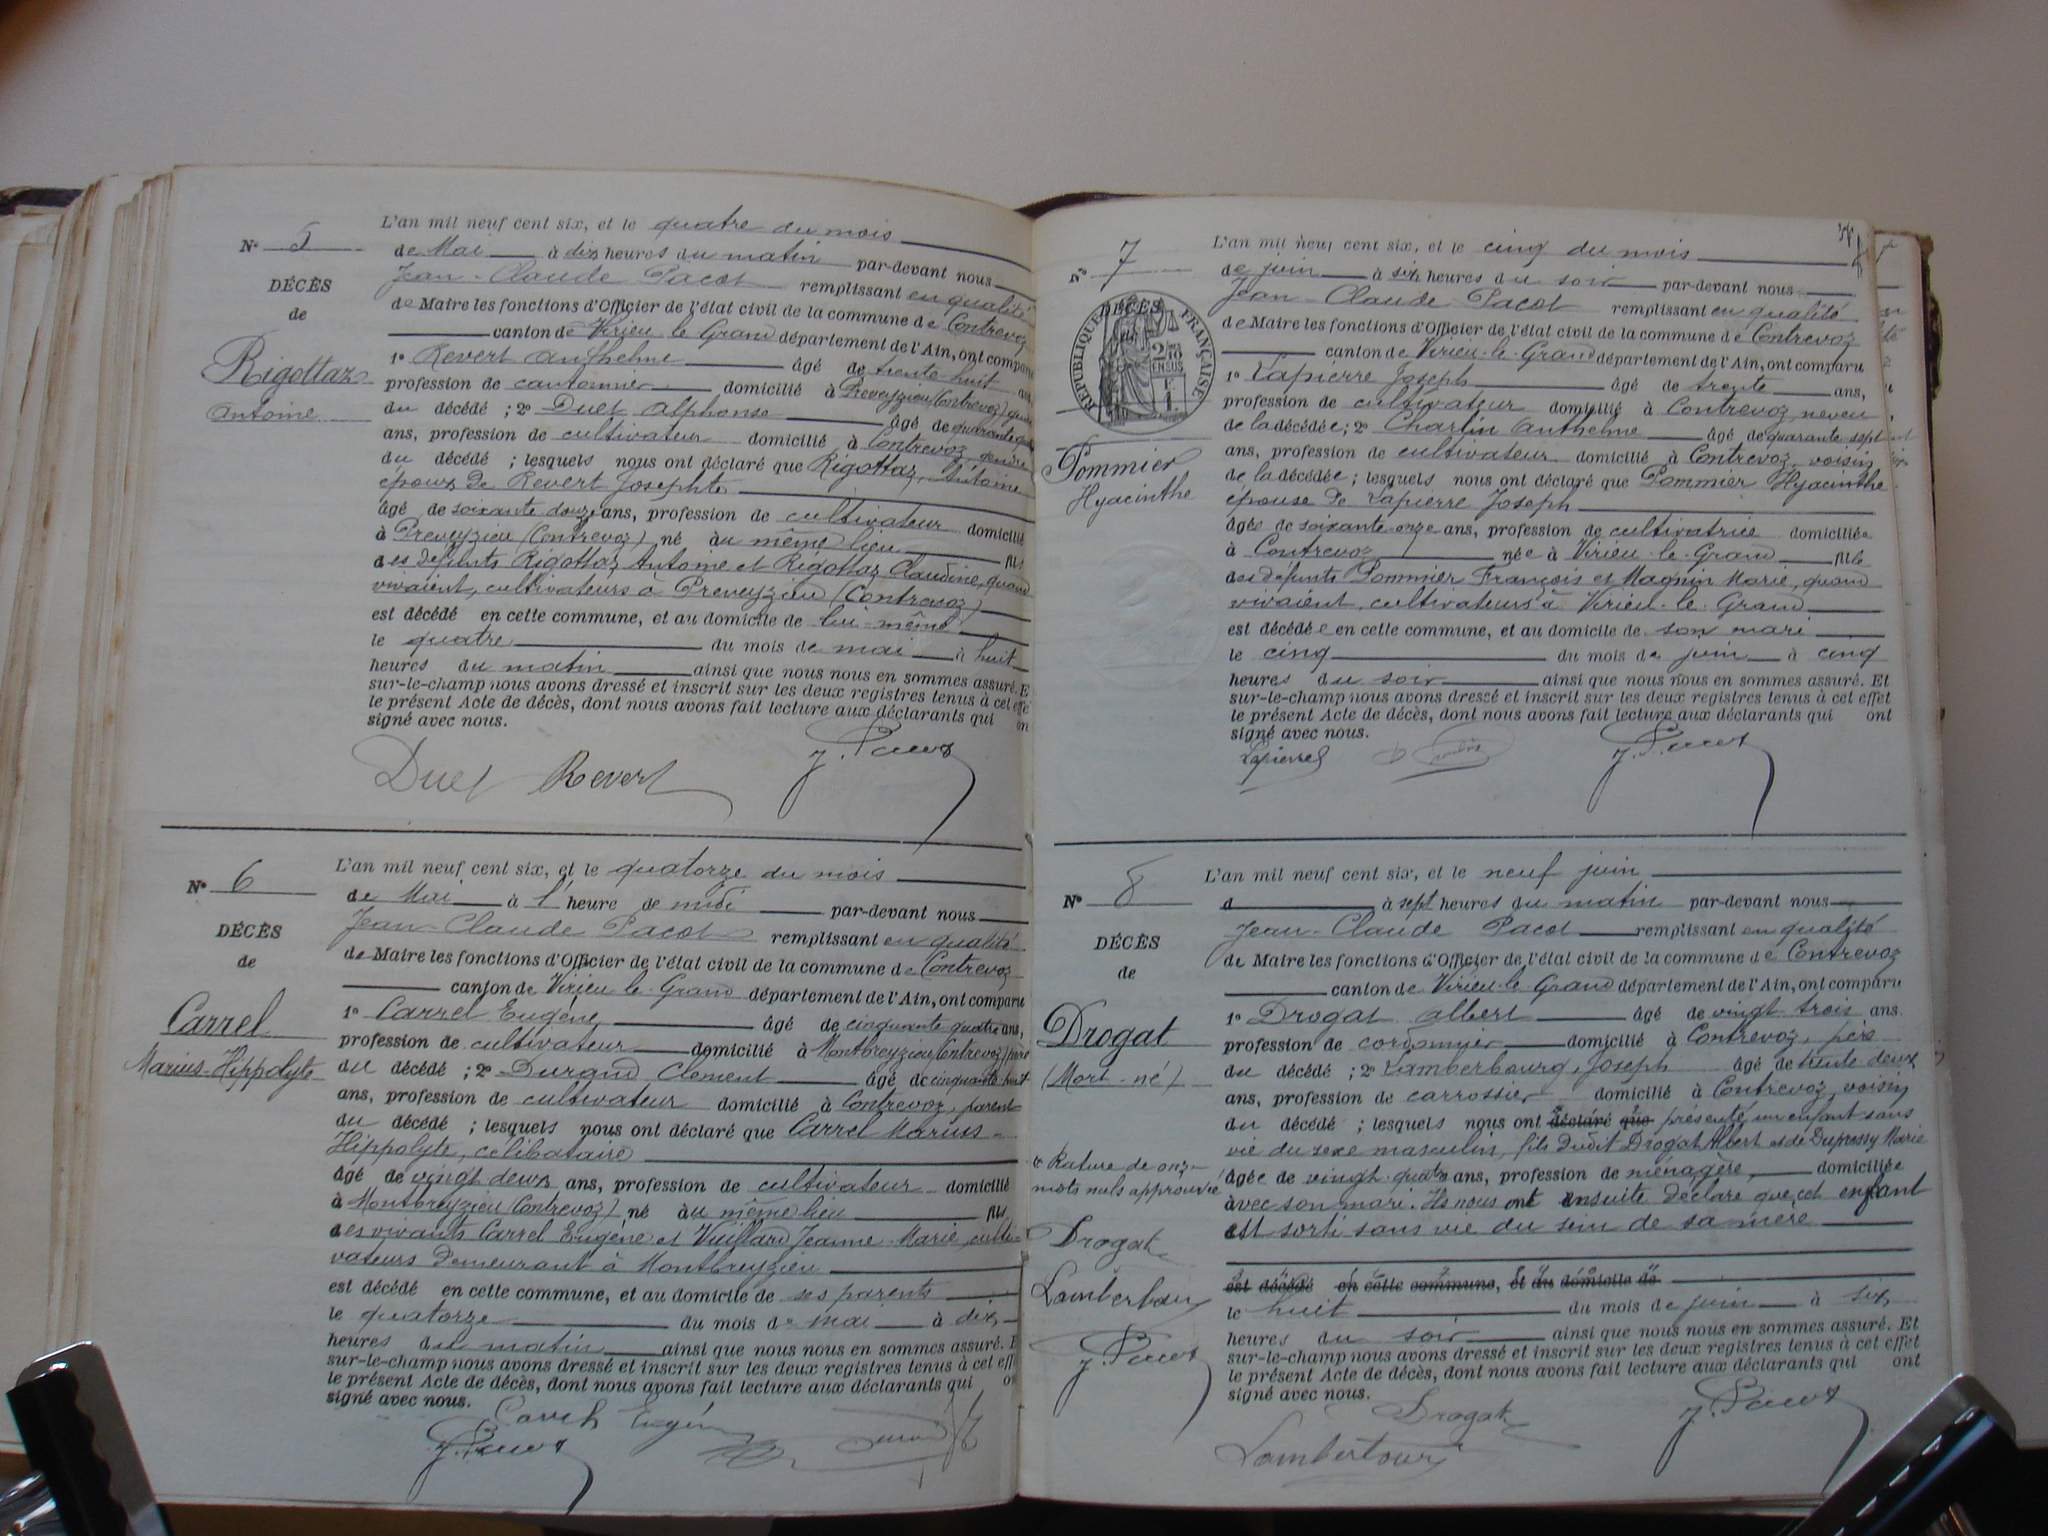 N° 5
DÉCÈS
de
Rigottaz
Antoine
L'an mil neuf cent six, et le quatre du mois
de Mai à dix heures du matin par-devant nous
Jean-Claude Pacot remplissant en qualité
de Maire les fonctions d'Officier de l'état civil de la commune de Contrevoz
canton de Virieu le Grand département de l'Ain, ont comparu
1° Revert Anthelme âgé de trente-huit ans,
profession de cantonnier domicilié à Preveyzieu (Contrevoz)
du décédé ; 2° Duet Alphonse âgé de quarante
ans, profession de cultivateur domicilié à Contrevoz, gendre
du décédé ; lesquels nous ont déclaré que Rigottaz, Antoine
époux de Revert Josephte
âgé de soixante douze ans, profession de cultivateur domicilié
à Preveyzieu (Contrevoz) né au même lieu fils
des défunts Rigottaz Antoine et Rigottaz Claudine, quand
vivaient, cultivateurs à Preveyzieu (Contrevoz)
est décédé en cette commune, et au domicile de lui-même
le quatre du mois de mai à huit
heures du matin ainsi que nous nous en sommes assuré. E
sur-le-champ nous avons dressé et inscrit sur les deux registres tenus à cet effe
le présent Acte de décès, dont nous avons fait lecture aux déclarants qui on
signé avec nous.
Duet Revert J. Pacot
N° 6
DÉCÈS
de
Carrel
Marius-Hippolyte
L'an mil neuf cent six, et le quatorze du mois
de Mai à l' heure de midi par-devant nous
Jean-Claude Pacot remplissant en qualité
de Maire les fonctions d'Officier de l'état civil de la commune de Contrevoz
canton de Virieu-le-Grand département de l'Ain, ont comparu
1° Carrel Eugène âgé de cinquante quatre ans,
profession de cultivateur domicilié à Montbreyzieu (Contrevoz) père
du décédé ; 2° Durand Clement âgé de cinquante huit
ans, profession de cultivateur domicilié à Contrevoz, parent
du décédé ; lesquels nous ont déclaré que Carrel Marius-
Hippolyte, célibataire
âgé de vingt deux ans, profession de cultivateur domicilié
à Montbreyzieu (Contrevoz) né au même lieu fils
des vivants Carrel Eugène et Vuillard Jeanne-Marie, culti-
vateurs demeurant à Montbreyzieu
est décédé en cette commune, et au domicile de ses parents
le quatorze du mois de mai à dix
heures du matin ainsi que nous nous en sommes assuré. E
sur-le-champ nous avons dressé et inscrit sur les deux registres tenus à cet eff
le présent Acte de décès, dont nous avons fait lecture aux déclarants qui o
signé avec nous.
Carrel Eugène
J. Pacot
N° 7
DÉCÈS
RÉPUBLIQUE FRANÇAISE
Pommier
Hyacinthe
L'an mil neuf cent six, et le cinq du mois
de juin à six heures du soir par-devant nous
Jean-Claude Pacot remplissant en qualité
de Maire les fonctions d'Officier de l'état civil de la commune de Contrevoz
canton de Virieu-le-Grand département de l'Ain, ont comparu
1° Lapierre Joseph âgé de trente ans,
profession de cultivateur domicilié à Contrevoz, neveu
de la décédée ; 2° Charlin Anthelme âgé de quarante sept
ans, profession de cultivateur domicilié à Contrevoz, voisin
de la décédée ; lesquels nous ont déclaré que Pommier Hyacinthe
épouse de Lapierre Joseph
âgée de soixante-onze ans, profession de cultivatrice domiciliée
à Contrevoz née à Virieu-le-Grand fille
des défunts Pommier François et Magnin Marie, quand
vivaient, cultivateurs à Virieu-le-Grand
est décédée en cette commune, et au domicile de son mari
le cinq du mois de juin à cinq
heures du soir ainsi que nous nous en sommes assuré. Et
sur-le-champ nous avons dressé et inscrit sur les deux registres tenus à cet effet
le présent Acte de décès, dont nous avons fait lecture aux déclarants qui ont
signé avec nous.
Lapierre J. Pacot
N° 8
DÉCÈS
de
Drogat
(Mort-né)
L'an mil neuf cent six, et le neuf juin
d à sept heures du matin par-devant nous
Jean-Claude Pacot remplissant en qualité
de Maire les fonctions d'Officier de l'état civil de la commune de Contrevoz
canton de Virieu-le-Grand département de l'Ain, ont comparu
1° Drogat Albert âgé de vingt trois ans.
profession de cordonnier domicilié à Contrevoz, père
du décédé ; 2° Lamberbourg, Joseph âgé de trente deux
ans, profession de carrossier domicilié à Contrevoz, voisin
du décédé ; lesquels nous ont déclaré que présenté un enfant sans
vie du sexe masculin, fils dudit Drogat Albert et de Dupressy Marie
âgée de vingt-quatre ans, profession de ménagère, domiciliée
avec son mari. Ils nous ont ensuite déclaré que cet enfant
est sorti sans vie du sein de sa mère
est décédé en cette commune, et au domicile de
le huit du mois de juin à six
heures du soir ainsi que nous nous en sommes assuré. Et
sur-le-champ nous avons dressé et inscrit sur les deux registres tenus à cet effet
le présent Acte de décès, dont nous avons fait lecture aux déclarants qui ont
signé avec nous.
Rature de onze
mots nuls approuvée
Drogat
Lambertour
J. Pacot
Drogat J. Pacot
Lambertour